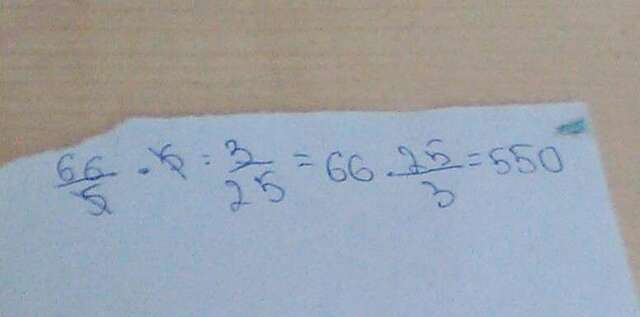 66/5 · 5 : 3/25 = 66 · 25/3 = 550